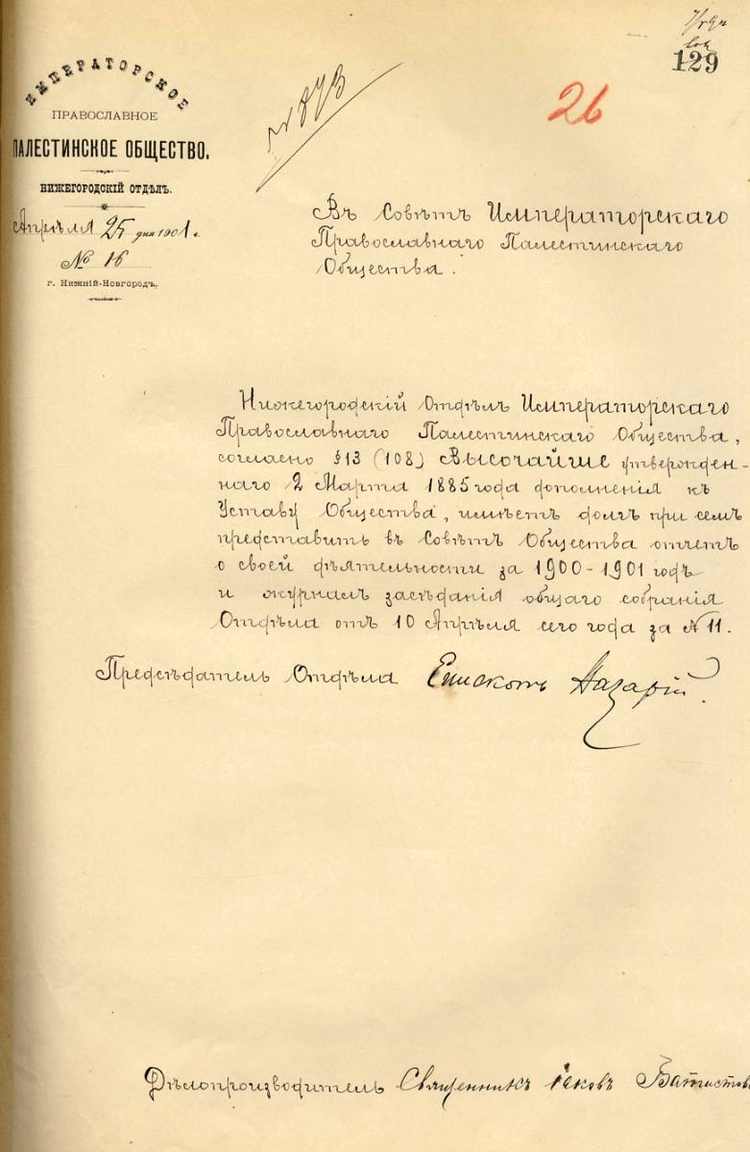 129
26
ИМПЕРАТОРСКОЕ
ПРАВОСЛАВНОЕ
ПАЛЕСТИНСКОЕ ОБЩЕСТВО.
НИЖЕГОРОДСКІЙ ОТДѢЛЪ.
Апрѣля 25 дня 1901 г.
№ 16
г. Нижній-Новгородъ.
Въ Совѣтъ Императорскаго
Православнаго Палестинскаго
Общества.
Нижегородскій Отдѣлъ Императорскаго
Православнаго Палестинскаго Общества,
согласно §13 (108) Высочайше утвержден-
наго 2 Марта 1885 года дополненія къ
Уставу Общества, имѣетъ долгъ при семъ
представить въ Совѣтъ Общества отчетъ
о своей дѣятельности за 1900-1901 годъ
и журналъ засѣданія общаго собранія
Отдѣла отъ 10 Апрѣля сего года за №11.
Предсѣдатель Отдѣла Епископъ Назарій.
Дѣлопроизводитель Священникъ Іаковъ